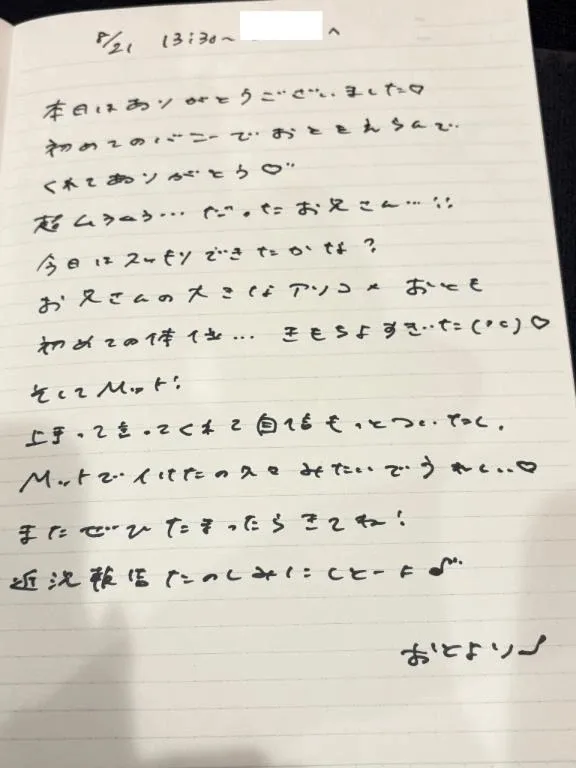 8/21 13:30~ へ
本日はありがとうございました♡
初めてのバニーでおとともあそんで
くれてありがとう♡
超ムラムラ…だったお兄さん…!!
今日はスッキリできたかな?
お兄さんの大きなアソコ× おとも
初めての体位… きもちよすぎた(°c)♡
そしてMット!
上手って言ってくれて自信もっとついたし、
Mットでイけたの久々みたいでうれしい♡
またぜひたまったらきてね!
近況報告たのしみにしとーよ♪
おとより♪